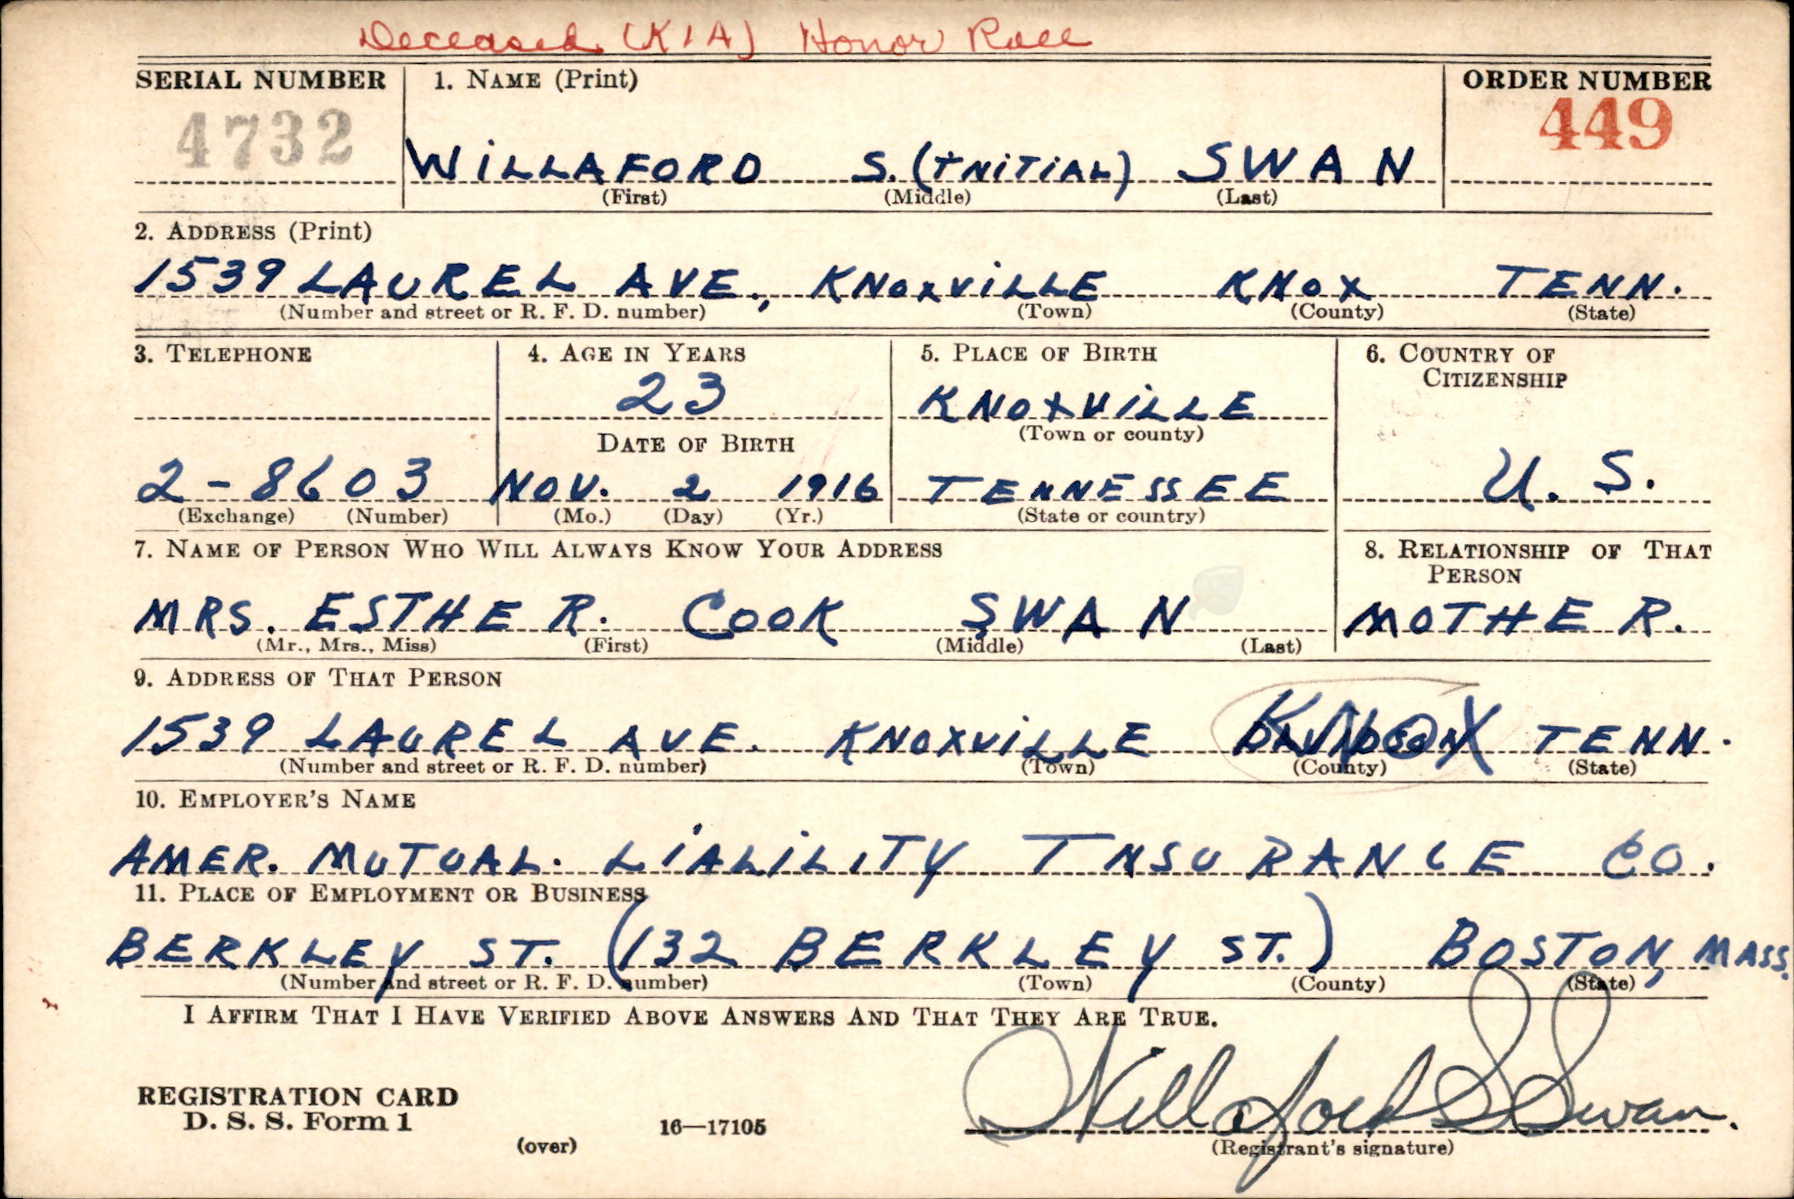 Deceased (KIA) Honor Roll
SERIAL NUMBER 1. NAME (Print) ORDER NUMBER
4732 449
WILLAFORD S. (INITIAL) SWAN
(First) (Middle) (Last)
2. ADDRESS (Print)
1539 LAUREL AVE., KNOXVILLE KNOX TENN.
(Number and street or R. F. D. number) (Town) (County) (State)
3. TELEPHONE 4. AGE IN YEARS 5. PLACE OF BIRTH 6. COUNTRY OF
CITIZENSHIP
23 KNOXVILLE
DATE OF BIRTH (Town or county)
2-8603 NOV. 2 1916 TENNESSEE U. S.
(Exchange) (Number) (Mo.) (Day) (Yr.) (State or country)
7. NAME OF PERSON WHO WILL ALWAYS KNOW YOUR ADDRESS 8. RELATIONSHIP OF THAT
PERSON
MRS. ESTHER. COOK SWAN MOTHER.
(Mr., Mrs., Miss) (First) (Middle) (Last)
9. ADDRESS OF THAT PERSON
1539 LAUREL AVE. KNOXVILLE KNOX TENN.
(Number and street or R. F. D. number) (Town) (County) (State)
10. EMPLOYER'S NAME
AMER. MUTUAL. LIALILITY INSURANCE CO.
11. PLACE OF EMPLOYMENT OR BUSINESS
BERKLEY ST. (132 BERKLEY ST.) BOSTON, MASS.
(Number and street or R. F. D. number) (Town) (County) (State)
I AFFIRM THAT I HAVE VERIFIED ABOVE ANSWERS AND THAT THEY ARE TRUE.
REGISTRATION CARD
D. S. S. Form 1 16—17105 Willaford S Swan.
(over) (Registrant's signature)